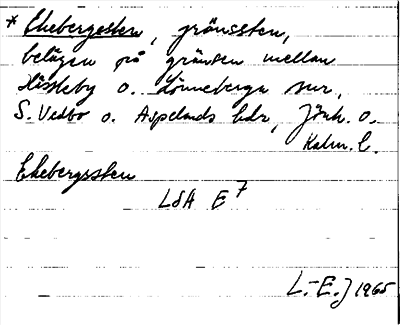 * Ekebergssten, gränssten,
belägen på gränsen mellan
Hässleby o. Lönneberga snr,
S. Vedbo o. Aspelands hdr, Jönk. o.
Kalm. l.
Ekebergssten
LSA E7
L.-E.J 1965